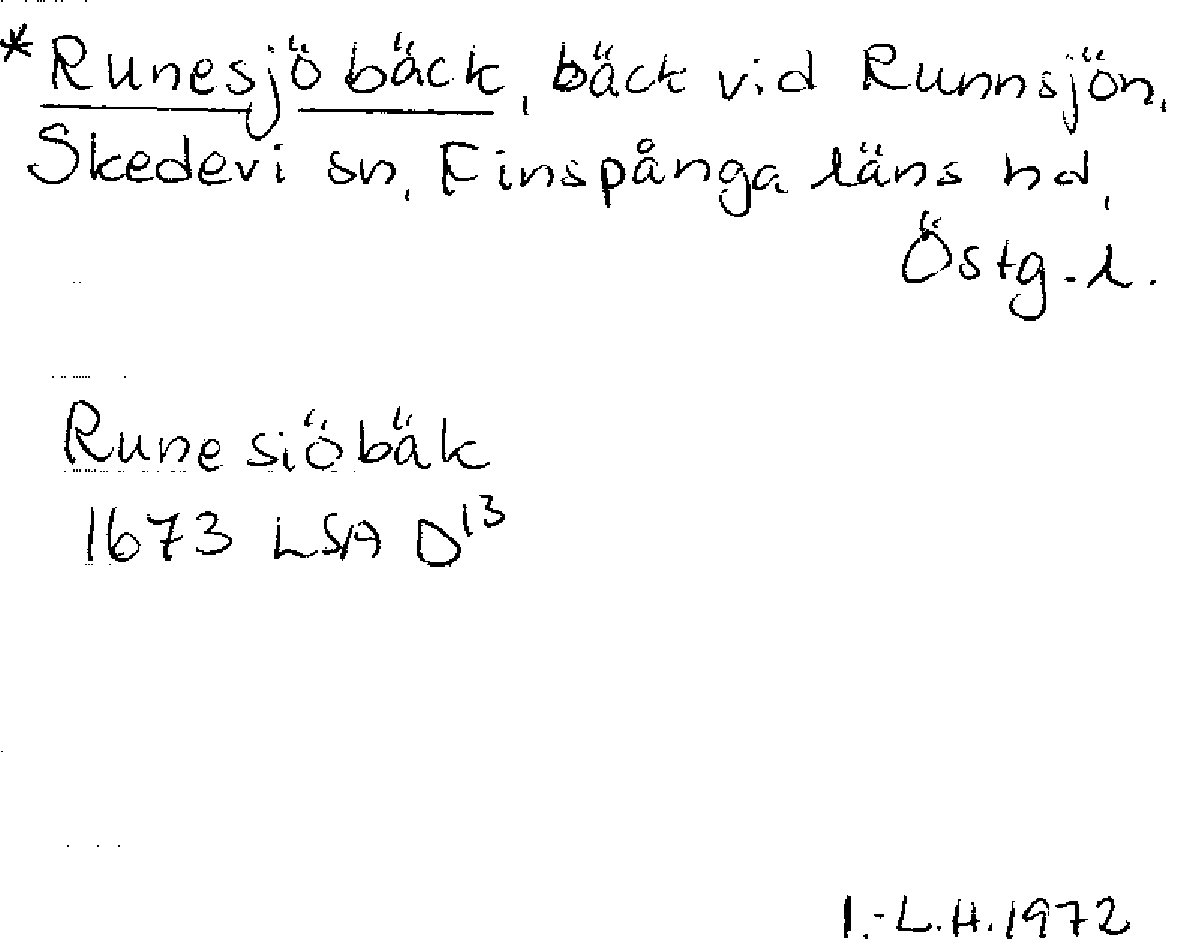 *Runesjöbäck, bäck vid Runnsjön,
Skedevi sn, Finspånga läns hd,
Östg.l.
Runesiöbäk
1673 LSA D13
I.-L.H.1972